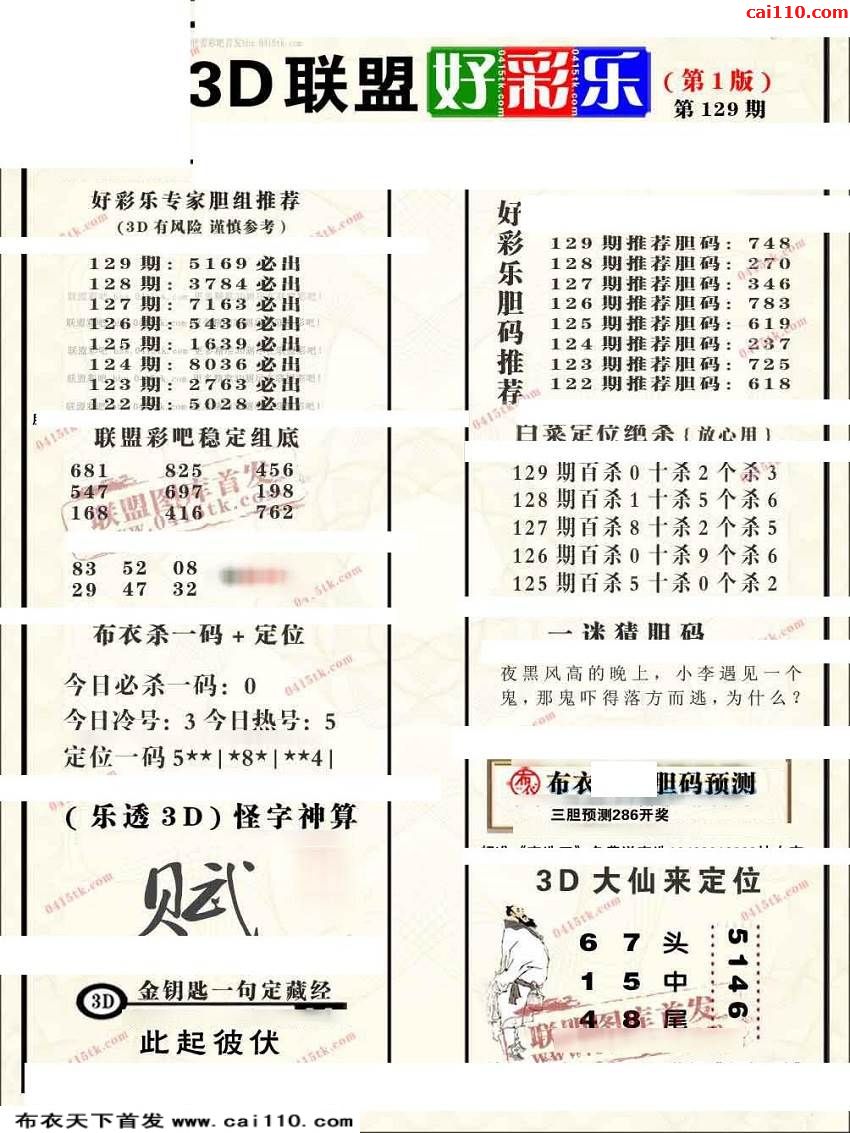 cai110.com
3D联盟好彩乐
(第1版)
第129期
好彩乐专家胆组推荐
(3D有风险 谨慎参考)
129期: 5169必出
128期: 3784必出
127期: 7163必出
126期: 5436必出
125期: 1639必出
124期: 8036必出
123期: 2763必出
122期: 5028必出
联盟彩吧稳定组底
681 825 456
547 697 198
168 416 762
83 52 08
29 47 32
布衣杀一码+定位
今日必杀一码: 0
今日冷号: 3 今日热号: 5
定位一码 5**|*8*|**4|
(乐透3D)怪字神算
赋
3D
金钥匙一句定藏经
此起彼伏
好彩乐胆码推荐
129期推荐胆码: 748
128期推荐胆码: 270
127期推荐胆码: 346
126期推荐胆码: 783
125期推荐胆码: 619
124期推荐胆码: 237
123期推荐胆码: 725
122期推荐胆码: 618
白菜定位绝杀{放心用}
129期百杀0十杀2个杀3
128期百杀1十杀5个杀6
127期百杀8十杀2个杀5
126期百杀0十杀9个杀6
125期百杀5十杀0个杀2
一迷猜胆码
夜黑风高的晚上,小李遇见一个
鬼,那鬼吓得落方而逃,为什么?
布衣
胆码预测
三胆预测286开奖
3D大仙来定位
6 7 头
1 5 中
4 8 尾
5146
联盟图库首发
www.0415tk.com
布衣天下首发 www.cai110.com